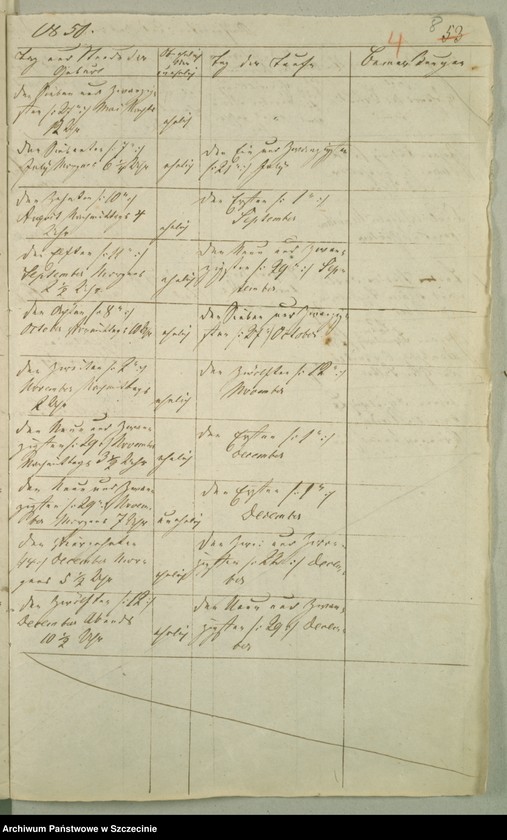 1850.
8
53
4
Tag und Stunde der
Geburt
Ob ehelich
oder
unehelich
Tag der Taufe
Bemerkungen
den Sieben und Zwanzig-
sten /: 27t :/ Mai Nachts
12 Uhr
ehelich
den Siebenten /: 7t :/
July Morgens 6 ½ Uhr
ehelich
den Ein und Zwanzigsten
/: 21t :/ July
den Zehnten /: 10t :/
August Nachmittags 4
Uhr
ehelich
den Ersten /: 1t :/
September
den Elften /: 11t :/
September Morgens
2 ½ Uhr
ehelich
den Neun und Zwan-
zigsten /: 29t :/ Sep-
tember
den Achten /: 8t :/
October Vormittags 10 Uhr
ehelich
den Sieben und Zwanzig-
sten /: 27t :/ October
den Zweiten /: 2t :/
November Nachmittags
2 Uhr
ehelich
den Zwölften /: 12t :/
November
den Neun und Zwan-
zigsten /: 29t :/ November
Nachmittags 3 ½ Uhr
ehelich
den Ersten /: 1t :/
December
den Neun und Zwan-
zigsten /: 29t :/ Novem-
ber Morgens 7 Uhr
unehelich
den Ersten /: 1t :/
December
den Vierzehnten
/: 14t :/ December Mor-
gens 5 ½ Uhr
ehelich
den Zwei und Zwan-
zigsten /: 22t :/ Decem-
ber
den Zwölften /: 12t :/
December Abends
10 ½ Uhr
ehelich
den Neun und Zwan-
zigsten /: 29t :/ Decem-
ber
Archiwum Państwowe w Szczecinie